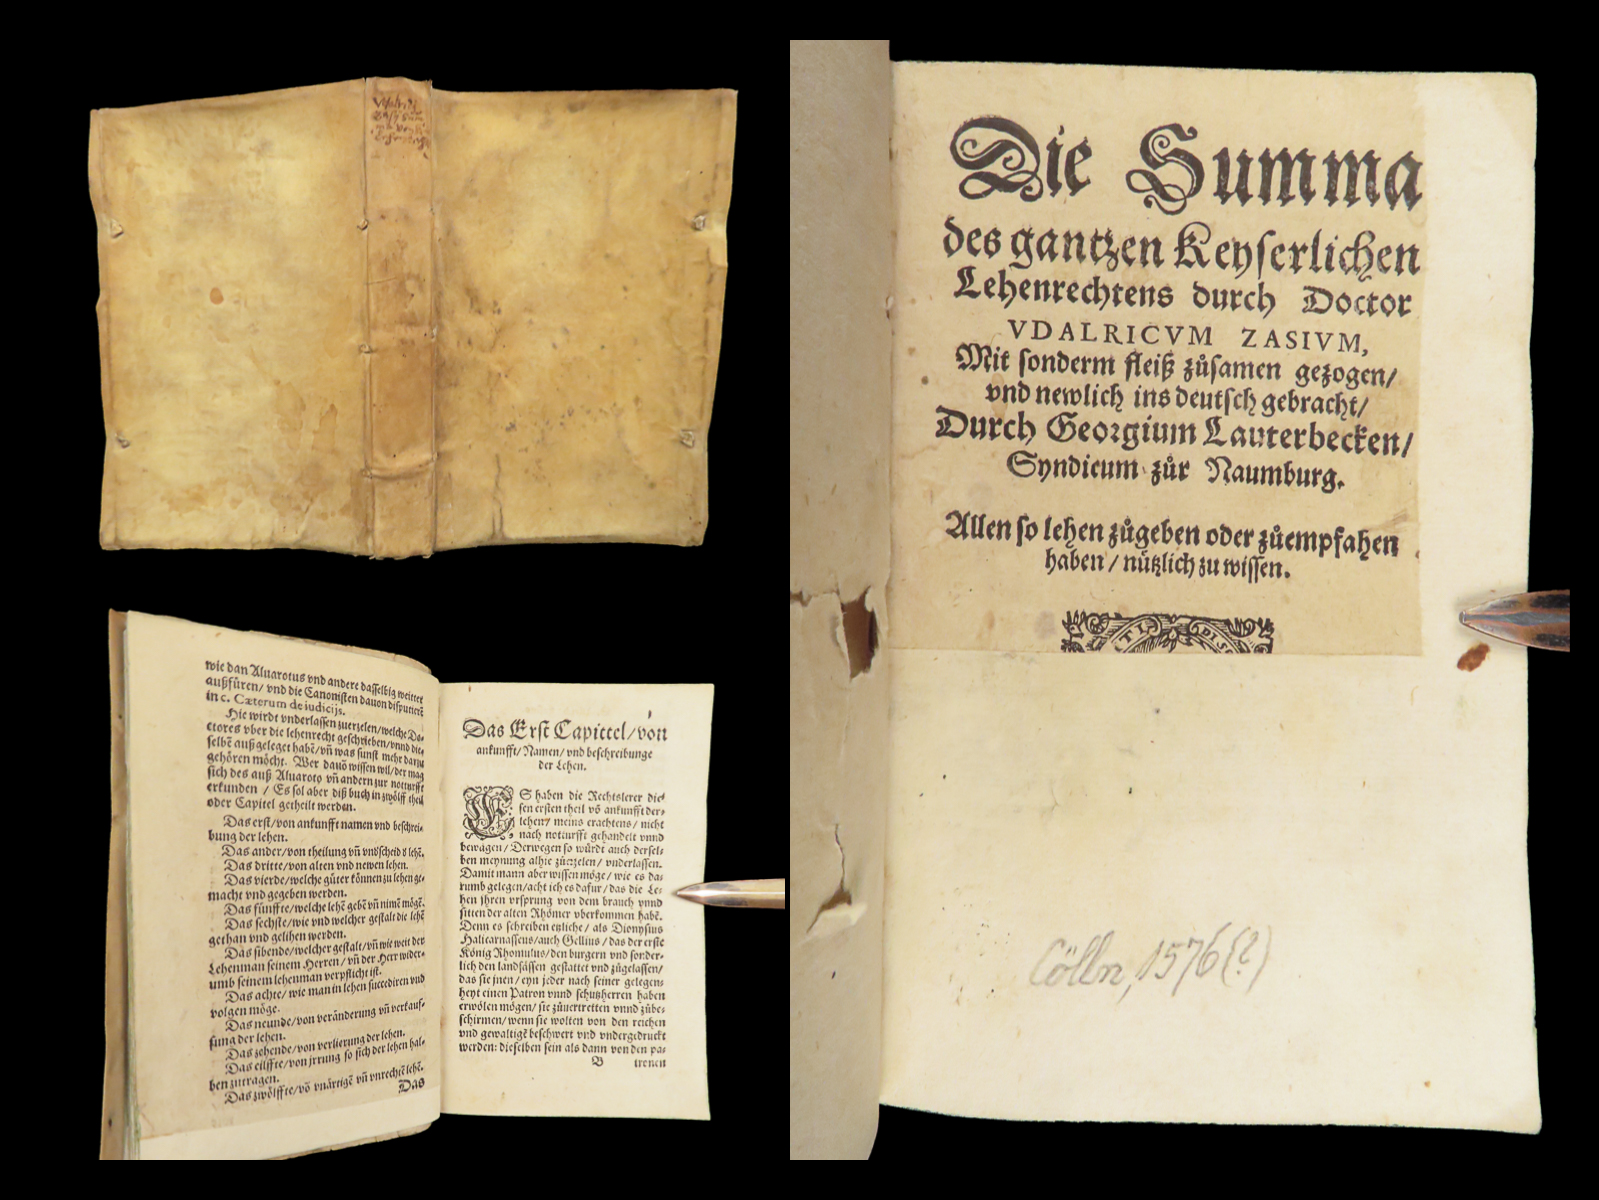 Die Summa
des gantzen Keyserlichen
Lehenrechtens durch Doctor
VDALRICVM ZASIVM,
Mit sonderm fleiß zůsamen gezogen/
vnd newlich ins deutsch gebracht/
Durch Georgium Lauterbecken/
Syndicum zůr Naumburg.
Allen so lehen zůgeben oder zůempfahen
haben / nützlich zu wissen.
TI DISC
Cölln, 1576(?)
wie dan Aluarotus vnd andere dasselbig weitter
außfüren/ vnd die Canonisten dauon disputierẽ
in c. Cæterum de iudicijs.
Hie wirdt vnderlassen zuerzelen/welche Do-
ctores vber die lehenrecht geschrieben/vnnd die-
selbẽ außgeleget habẽ/vñ was sunst mehr darzu
gehören möcht. Wer dauõ wissen wil/der mag
sich des auß Aluaroto vñ andern zur notturfft
erkunden / Es sol aber diß buch in zwölff theil
oder Capitel getheilt werden.
Das erst/von ankunfft namen vnd beschrei-
bung der lehen.
Das ander/von theilung vñ vndscheid d lehẽ.
Das dritte/von alten vnd newen lehen.
Das vierde/welche güter können zu lehen ge-
macht vnd gegeben werden.
Das fünffte/welche lehẽ gebẽ vñ nimẽ mögẽ.
Das sechste/wie vnd welcher gestalt die lehẽ
gethan vnd gelihen werden.
Das sibende/welcher gestalt/vñ wie weit der
Lehenman seinem Herren/ vñ der Herr wider-
umb seinem lehenman verpflicht ist.
Das achte/ wie man in lehen succediren vnd
volgen möge.
Das neunde/von veränderung vñ verkauf-
fung der lehen.
Das zehende/von verlierung der lehen.
Das eilffte/von jrrung so sich der lehen hal-
ben zutragen.
Das zwölffte/võ vnärtigẽ vñ vnrechtẽ lehẽ.
Das
Das Erst Capittel/von
ankunfft/Namen/vnd beschreibunge
der Lehen.
ES haben die Rechtslerer die-
sen ersten theil võ ankunfft der-
lehen/ meins erachtens/ nicht
nach notturfft gehandelt vnnd
bewagen/ Derwegen so würdt auch dersel-
ben meynung alhie zůerzelen/ vnderlassen.
Damit mann aber wissen möge/ wie es da-
rumb gelegen/acht ich es dafur/das die Le-
hen jhren vrsprung von dem brauch vnnd
sitten der alten Rhömer vberkommen habẽ.
Denn es schreiben etzliche/ als Dionysius
Halicarnasseus/auch Gellius/das der erste
König Rhomulus/den burgern vnd sonder-
lich den landsässen gestattet vnd zůgelassen/
das sie jnen/ eyn jeder nach seiner gelegen-
heyt einen Patron vnnd schutzherren haben
erwölen mögen/ sie zůuertretten vnnd zůbe-
schirmen/wenn sie wolten von den reichen
vnd gewaltigẽ beschwert vnd vndergedruckt
werden: dieselben sein als dann von den pa-
B tronen